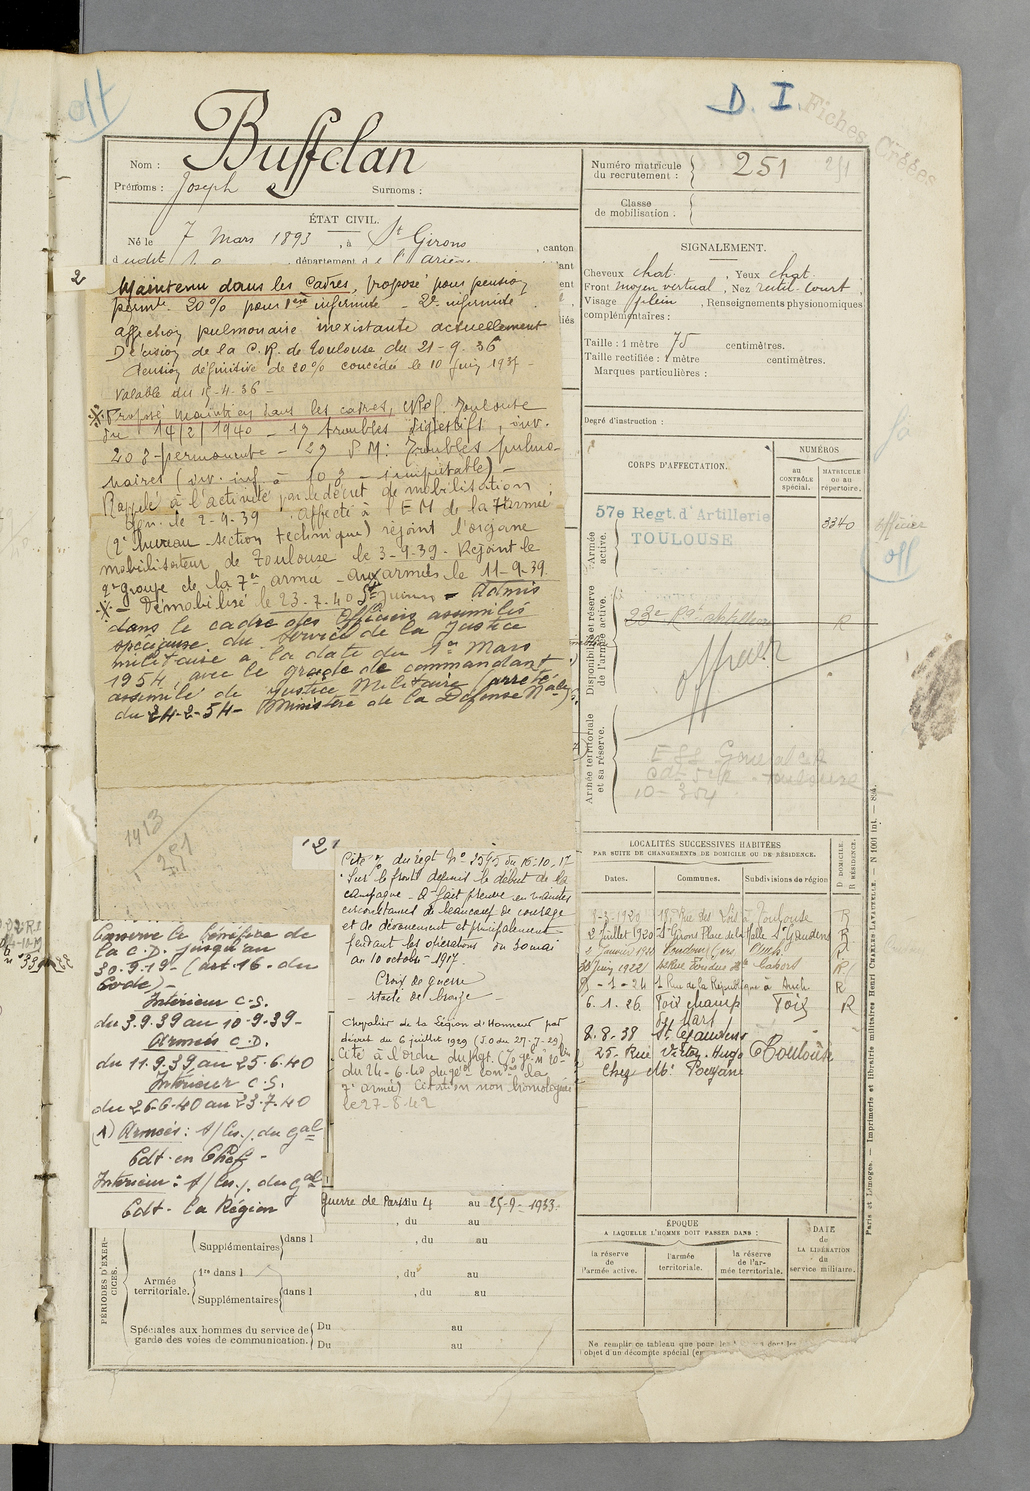 off
D. I.
Fiches Créées
Nom : Buffelan
Prénoms : Joseph Surnoms :
ÉTAT CIVIL.
Né le 7 Mars 1893, à St Girons, canton
dudit, département de l'Ariège
2
Maintenu dans les cadres, proposé pour pension
permte. 20% pour 1ère infirmité - 2e infirmité
affection pulmonaire inexistante actuellement
Décision de la C.R. de Toulouse du 21-9-36
Pension définitive de 20% concédée le 10 juin 1937 -
valable du 15-4-36 -
Proposé maintien dans les cadres, Toulouse
du 14/2/1940 - 1° troubles digestifs, inv.
20%-permanente - 2° P M : Troubles pulmo-
naires (inv. inf. à 10% - imputable) -
Rappelé à l'activité par le décret de mobilisation
gén. le 2-9-39. affecté à l'E M de la 7e armée
(2e bureau-section technique) rejoint l'organe
mobilisateur de Toulouse le 3-9-39- Rejoint le
2e groupe de la 7e armée - aux armées le 11-9-39.
Démobilisé le 23-7-40 - Admis
dans le cadre des Officiers assimilés
spéciaux du service de la Justice
militaire à la date du 1er Mars
1954, avec le grade de commandant
assimilé de Justice Militaire (arrêté
du 24-2-54- Ministère de la Défense Nale)
1913
251
Conserve le bénéfice de
la C.D. jusqu'au
30.9.19- (art. 16. du
Code)-
Intérieur C.S.
du 3.9.39 au 10-9-39-
Armées C.D.
du 11.9.39 au 25-6-40
Intérieur C.S.
du 26-6-40 au 23-7-40
(1) Armées : du Gal
Cdt. en Chef -
Intérieur : du Gal
Cdt. la Région
"2"
du régt No 2595 du 16-10-17
Sur le front depuis le début de la
campagne. A fait preuve en maintes
circonstances de beaucoup de courage
et de dévouement et principalement
pendant les opérations du 30 mai
au 10 octobre 1917.
Croix de guerre
étoile de bronze -
Chevalier de la Légion d'Honneur par
décret du 6 juillet 1929 (J.O du 27-7-29)
Cité à l'ordre du Régt.
du 24-6-40 du Gal la
7e armée) Citation non homologuée
le 27-8-42
guerre de Paris du 4 au 25-9-1933.
, du au
PÉRIODES D'EXERCICES.
Supplémentaires dans l , du au
Armée territoriale.
1re dans l , du au
Supplémentaires dans l , du au
Spéciales aux hommes du service de garde des voies de communication.
Du au
Du au
Numéro matricule du recrutement : 251
Classe de mobilisation :
SIGNALEMENT.
Cheveux chat. , Yeux chat.
Front moyen vertical, Nez rectil. court,
Visage plein, Renseignements physionomiques
complémentaires :
Taille : 1 mètre 75 centimètres.
Taille rectifiée : 1 mètre centimètres.
Marques particulières :
Degré d'instruction :
CORPS D'AFFECTATION.
NUMÉROS
au CONTRÔLE spécial.
MATRICULE OU AU répertoire.
Armée active.
57e Regt. d'Artillerie
TOULOUSE
3340
officier
off
Disponibilité et réserve de l'armée active.
23e Rgt artillerie
R
officier
Armée territoriale et sa réserve.
Toulouse
LOCALITÉS SUCCESSIVES HABITÉES
PAR SUITE DE CHANGEMENTS DE DOMICILE OU DE RÉSIDENCE.
Dates. Communes. Subdivisions de région
D DOMICILE.
R RÉSIDENCE.
1920 Rue des à Toulouse R
2 juillet 1920 St Girons Place de la Halle St Gaudens R
Gers Auch R
juin 1922 Cahors R
1 - 24 1 Rue de la République à Auch R
6. 1. 26. Foix champ Foix R
de Mars
8.8.38 St Gaudens
25. Rue Victor Hugo Toulouse
Chez Mr
ÉPOQUE
A LAQUELLE L'HOMME DOIT PASSER DANS :
la réserve de l'armée active.
l'armée territoriale.
la réserve de l'armée territoriale.
DATE
de
LA LIBÉRATION
du
service militaire.
Ne remplir ce tableau que pour les
objet d'un décompte spécial
Paris et Limoges. — Imprimerie et librairie militaires Henri CHARLES-LAVAUZELLE. — N 1001 int.